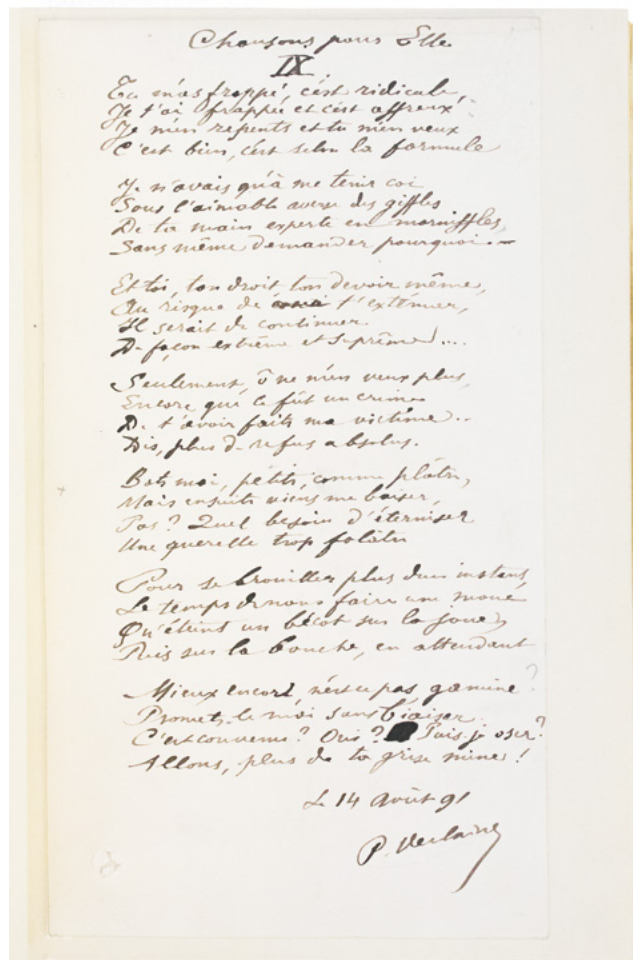 Chansons pour Elle
IX
Tu m'as frappé, c'est ridicule,
Je t'ai frappée et c'est affreux
Je m'en repents et tu m'en veux
C'est bien, c'est selon la formule
Je n'avais qu'à me tenir coi
Sous l'aimable averse des giffles
De ta main experte en mornifles,
Sans même demander pourquoi.—
Et toi, ton droit ton devoir même,
Au risque de t'exténuer,
Il serait de continuer
De façon extrême et suprême....
Seulement, ô ne m'en veux plus,
Encore que ce fût un crime
De t'avoir faite ma victime..
Dis, plus de refus absolus.
Bats moi, petite, comme plâtre,
Mais ensuite viens me baiser,
Pas? Quel besoin d'éterniser
Une querelle trop folâtre
Pour se brouiller plus d'un instant,
Le temps de nous faire une moue
Qu'éteint un bécot sur la joue,
Puis sur la bouche, en attendant
Mieux encor, n'est ce pas, gamine?
Promets-le moi sans biaiser
C'est convenu? Oui? Puis-je oser?
Allons, plus de ta grise mine!
Le 14 Août 91
P. Verlaine